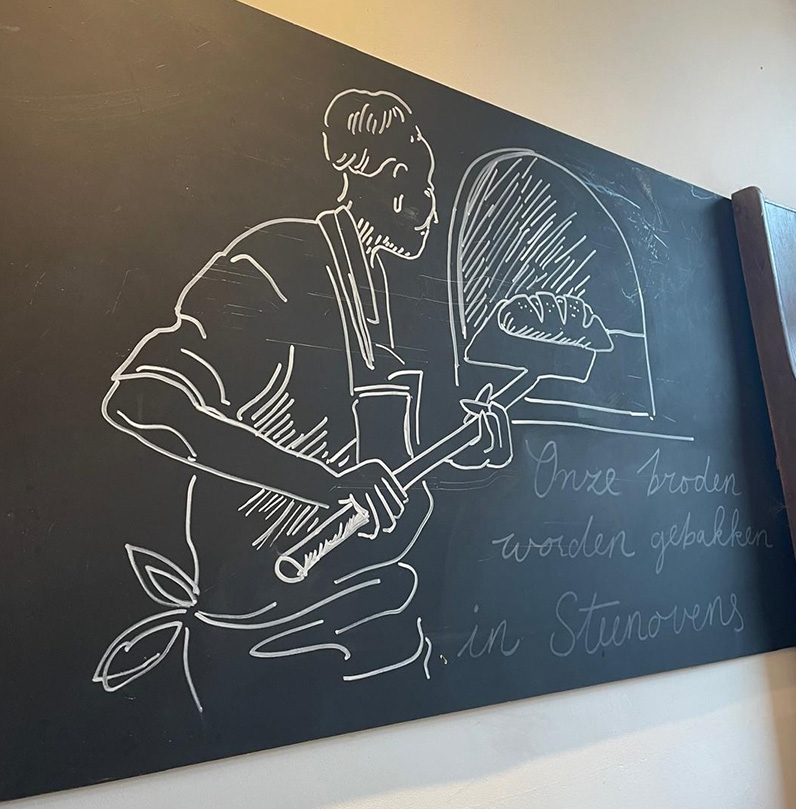 Onze broden
worden gebakken
in Steenovens